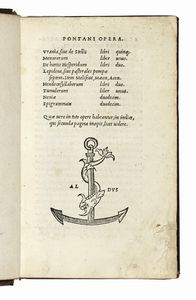 PONTANI OPERA.
Vrania, siue de Stellis libri quinq;
Meteororum liber unus.
De hortis Hesperidum libri duo.
Lepidina, siue pastorales pompæ
septem. Item Meliseus, Mæon, Acon.
Hendecasyllaborum libri duo.
Tumulorum liber unus.
Neniæ duodecim.
Epigrammata duodecim.
Quæ uero in toto opere habeantur in indice,
qui secunda pagina inest licet uidere.
AL DVS